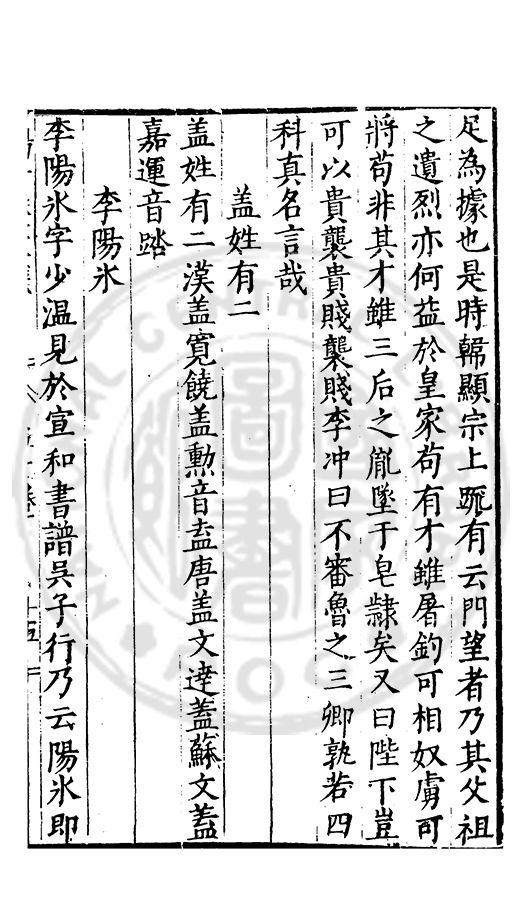 足為據也是時韓顯宗上䟽有云門望者乃其父祖
之遺烈亦何益於皇家苟有才雖屠釣可相奴虜可
將苟非其才雖三后之胤墜于皂隸矣又曰陛下豈
可以貴襲貴賤襲賤李冲曰不審魯之三卿孰若四
科真名言哉
盖姓有二
盖姓有二漢盖寛饒盖勲音盍唐盖文達蓋蘇文盖
嘉運音踏
李陽氷
李陽氷字少温見於宣和書譜吳子行乃云陽氷即